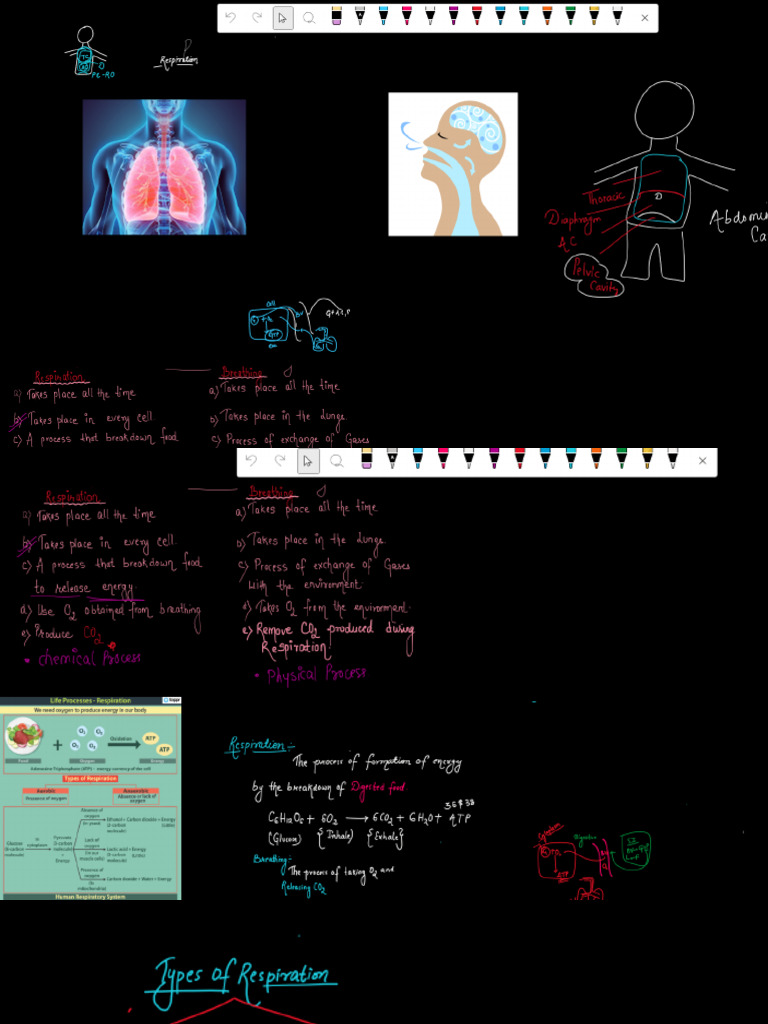 Respiration
Thoracic
D
Diaphragm
AC
Pelvic
Cavity
Respiration
a) Takes place all the time
b) Takes place in every cell.
c) A process that breakdown food
Breathing
a) Takes place all the time
b) Takes place in the lungs
c) Process of exchange of Gases
Respiration
a) Takes place all the time
b) Takes place in every cell.
c) A process that breakdown food
to release energy.
d) Use O2 obtained from breathing
e) Produce CO2
• Chemical Process
Breathing
a) Takes place all the time
b) Takes place in the lungs
c) Process of exchange of Gases
with the environment.
d) Takes O2 from the environment.
e) Remove CO2 produced during
Respiration
• Physical Process
Life Processes - Respiration
We need oxygen to produce energy in our body
O2 O2
O2 O2
Oxidation
ATP
ATP
Food
Oxygen
Energy
Adenosine Triphosphate (ATP) - energy currency of the cell
Types of Respiration
Aerobic
Presence of oxygen
Anaerobic
Absence or lack of
oxygen
Absence of
oxygen
(In yeast)
Ethanol + Carbon dioxide + Energy
Glucose
In
cytoplasm
Pyruvate
Energy
Lack of
oxygen
Lactic acid + Energy
Presence of
oxygen
(In
mitochondria)
Carbon dioxide + Water + Energy
Human Respiratory System
Respiration :-
The process of formation of energy
by the breakdown of Digested food
36 & 38
C6H12O6 + 6O2 → 6CO2 + 6H2O + ATP
(Glucose) {Inhale} {Exhale}
Breathing-
The process of taking O2 and
Releasing CO2
ATP
Types of Respiration